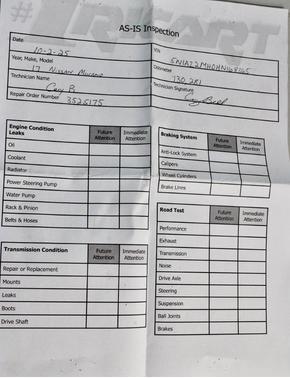 #1
AS-IS Inspection
Date
10-2-25
Year, Make, Model
17 Nissan Murano
Technician Name
Cory B.
Repair Order Number 3525175
VIN
Odometer
130 281
Technician Signature
Engine Condition
Leaks
Future Attention
Immediate Attention
Oil
Coolant
Radiator
Power Steering Pump
Water Pump
Rack & Pinion
Belts & Hoses
Transmission Condition
Future Attention
Immediate Attention
Repair or Replacement
Mounts
Leaks
Boots
Drive Shaft
Braking System
Future Attention
Immediate Attention
Anti-Lock System
Calipers
Wheel Cylinders
Brake Lines
Road Test
Future Attention
Immediate Attention
Performance
Exhaust
Transmission
Noise
Drive Axle
Steering
Suspension
Ball Joints
Brakes